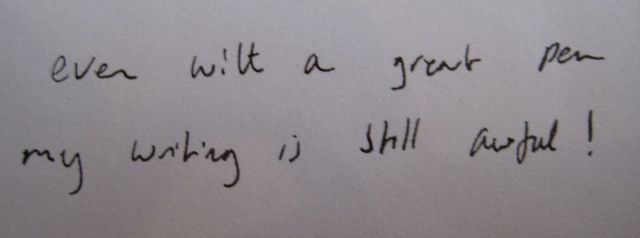 even with a great pen
my writing is still awful!